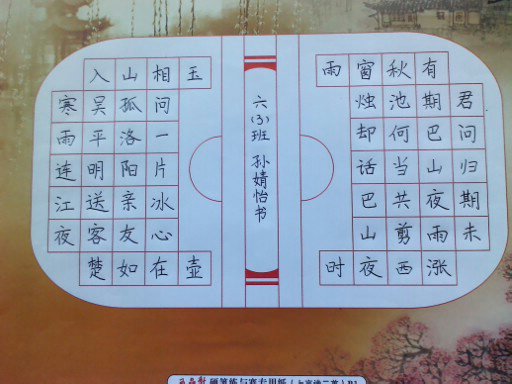 君问归期未
有期巴山夜雨涨
秋池何当共剪西
窗烛却话巴山夜
雨时
六(3)班 孙婧怡书
寒雨连江夜
入吴平明送客楚
山孤洛阳亲友如
相问一片冰心在
玉壶
硬笔练与赛专用纸